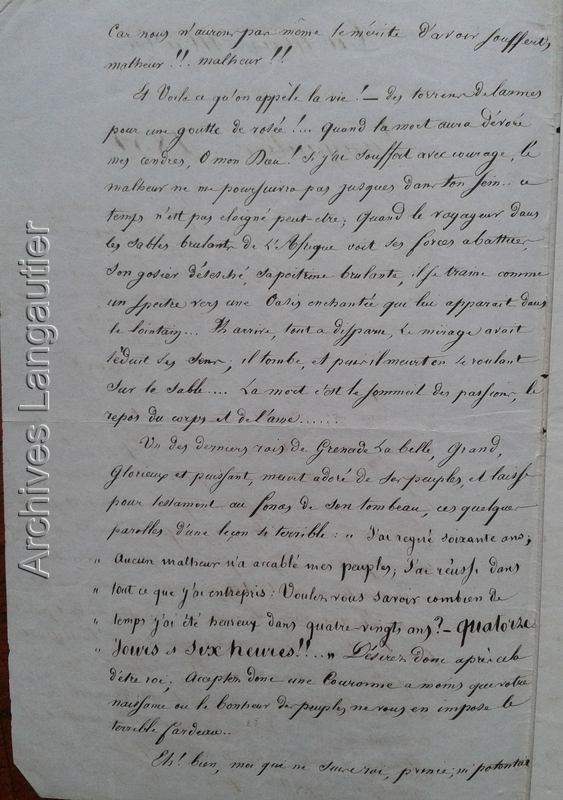 Car nous n'aurons pas même le mérite d'avoir souffert,
malheur!!. malheur!!
4 Voila ce qu'on appèle la vie! — des torrens de larmes
pour une goutte de rosée!... Quand la mort aura dévoré
mes cendres, O mon Dieu! si j'ai souffert avec courage, le
malheur ne me poursuivra pas jusques dans ton sein.. ce
temps n'est pas eloigné peut-etre; quand le voyageur dans
les sables brulants de L'Afrique voit ses forces abattues,
son gosier déseché, sa poitrine brulante, il se traine comme
un spectre vers une Oasis enchantée qui lui apparait dans
le lointain... Il arrive, tout a disparu, Le mirage avait
séduit ses sens; il tombe, et puis il meurt en se roulant
sur le sable.... La mort c'est le sommeil des passions, le
repos du corps et de l'ame......
Un des derniers rois de Grenade La belle, Grand,
Glorieux et puissant, meurt adoré de ses peuples, et laisse
pour testament au fonds de son tombeau, ces quelques
parolles d'une leçon si terrible: „ J'ai regné soixante ans;
„ Aucun malheur n'a accablé mes peuples; J'ai réussi dans
„ tout ce que j'ai entrepris: Voulez vous savoir combien de
„ temps j'ai été heureux dans quatre vingts ans? — quatorze
„ Jours et six heures!!... „ Désirez donc après cela
d'être roi; Acceptez donc une Couronne a moins que votre
naissance ou le bonheur des peuples ne vous en impose le
terrible fardeau..
Eh! bien, moi qui ne suis roi, prince, ni potentat
Archives Langautier